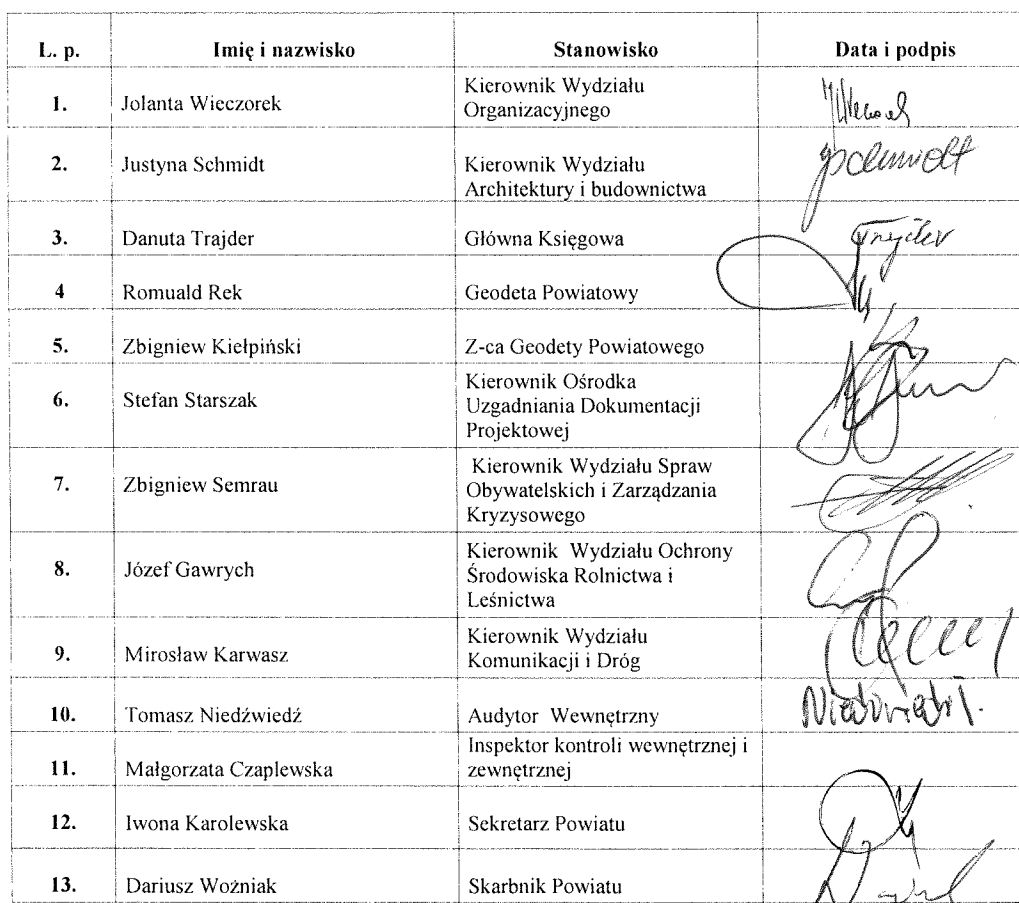 L. p. Imię i nazwisko Stanowisko Data i podpis
1. Jolanta Wieczorek Kierownik Wydziału
Organizacyjnego
2. Justyna Schmidt Kierownik Wydziału
Architektury i budownictwa
JSchmidt
3. Danuta Trajder Główna Księgowa Trajder
4 Romuald Rek Geodeta Powiatowy
5. Zbigniew Kiełpiński Z-ca Geodety Powiatowego
6. Stefan Starszak Kierownik Ośrodka
Uzgadniania Dokumentacji
Projektowej
7. Zbigniew Semrau Kierownik Wydziału Spraw
Obywatelskich i Zarządzania
Kryzysowego
8. Józef Gawrych Kierownik Wydziału Ochrony
Środowiska Rolnictwa i
Leśnictwa
9. Mirosław Karwasz Kierownik Wydziału
Komunikacji i Dróg
10. Tomasz Niedźwiedź Audytor Wewnętrzny Niedźwiedź T.
11. Małgorzata Czaplewska Inspektor kontroli wewnętrznej i
zewnętrznej
12. Iwona Karolewska Sekretarz Powiatu
13. Dariusz Woźniak Skarbnik Powiatu